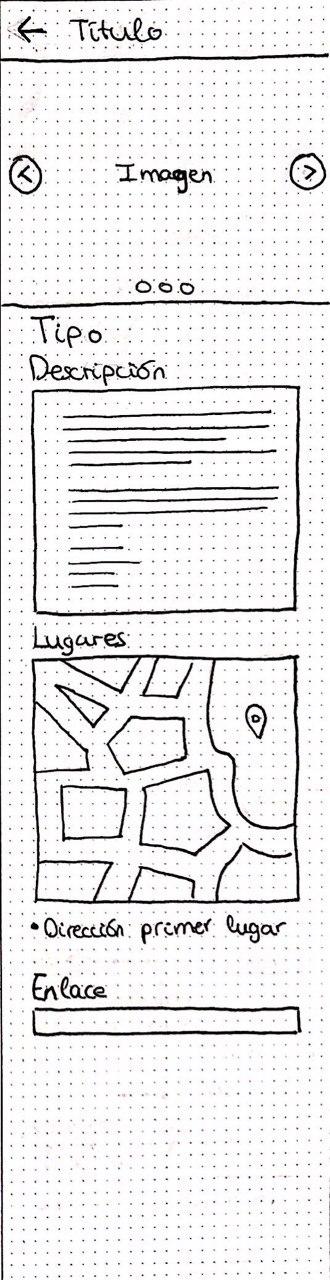 ← Título
Imagen
Tipo
Descripción
Lugares
• Dirección primer lugar
Enlace